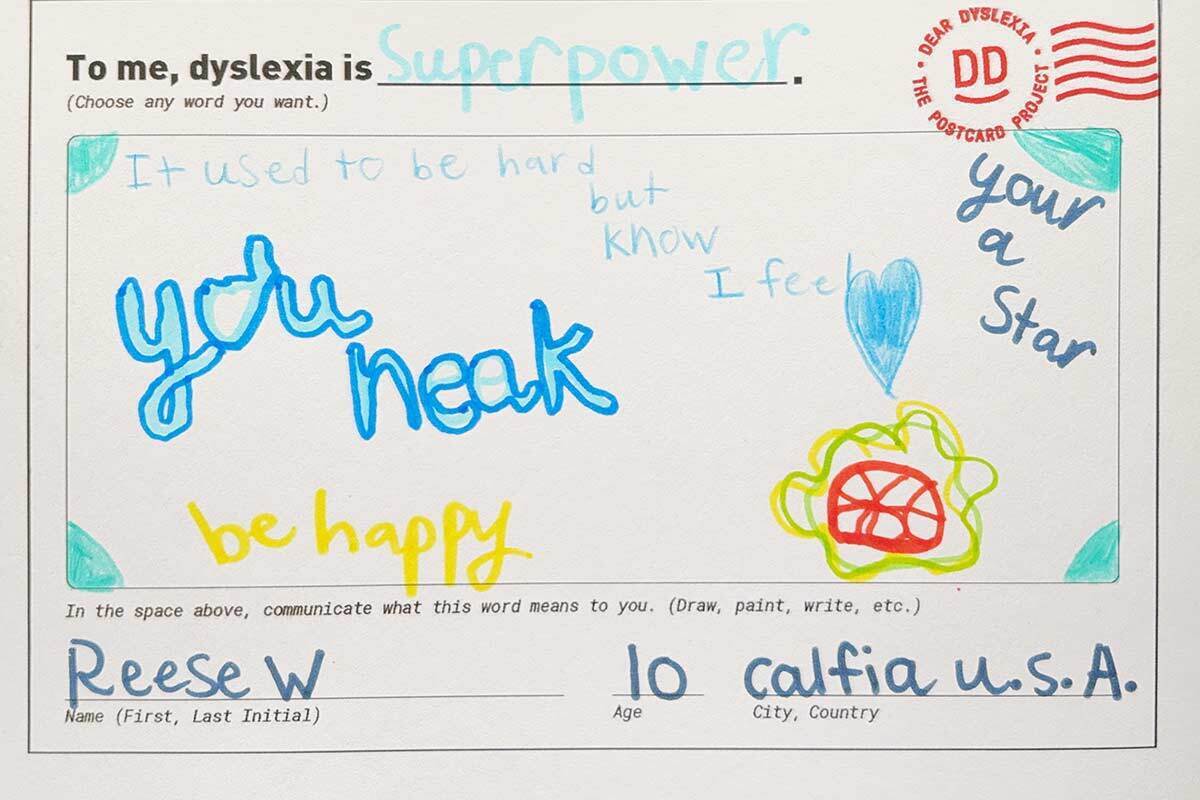 To me, dyslexia is Superpower.
(Choose any word you want.)
DEAR DYSLEXIA
DD
THE POSTCARD PROJECT
It used to be hard
but
know
I feel
your
a
Star
you
neak
be happy
In the space above, communicate what this word means to you. (Draw, paint, write, etc.)
Reese W
10
calfia u.s.A.
Name (First, Last Initial)
Age
City, Country